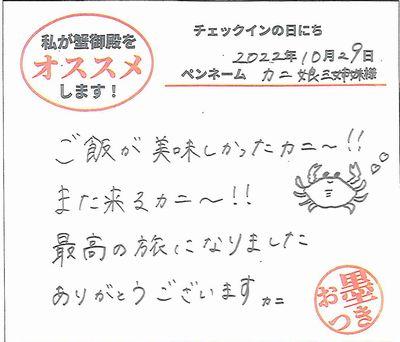 私が蟹御殿を
オススメ
します！
チェックインの日にち
2022年10月29日
ペンネーム カニ娘三姉妹様
ご飯が美味しかったカニ～!!
また来るカニ～!!
最高の旅になりました
ありがとうございますカニ
お墨つき